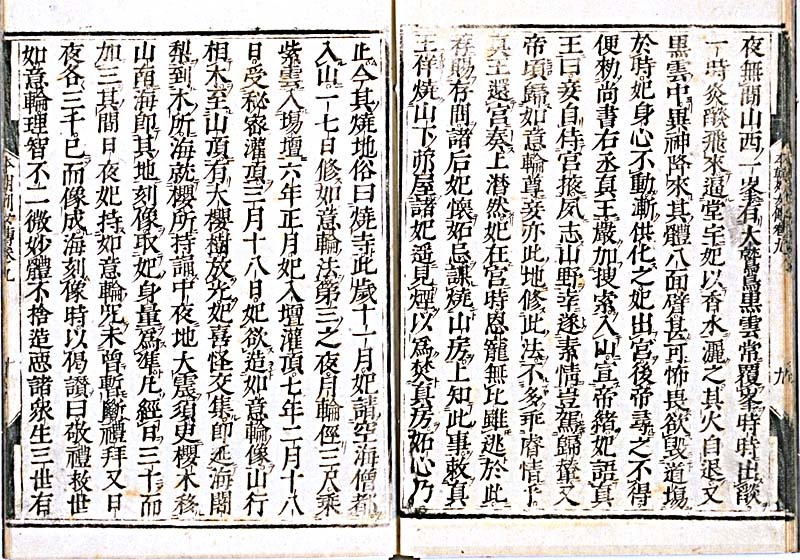 夜無間山西一峯有大鷲鳥黒雲常覆峯時時出燄
一時炎燄飛來逼堂宇妃以香水灑之其火自退又
黒雲中異神降來其體八面臂甚可怖畏欲毀道塲
於時妃身心不動漸供化之妃出宮後帝尋之不得
便勑尚書右丞真王嚴加搜索入山宣帝緒妃語真
王曰妾自侍宮掖夙志山野幸遂素情豈駕歸輦又
帝頃歸如意輪尊妾亦此地修此法不多乖睿情乎
真王還宮奏上潸然妃在宮時恩寵無比雖逃於此
荐賜存問諸后妃懷妬忌謙燒山房上知此事敕真
王佯燒山下茆屋諸妃遥見煙以爲焚真房妬心乃
止今其燒地俗曰燒寺此歲十一月妃請空海僧都
入山一七日修如意輪法第三之夜月輪徑三尺乘
紫雲入塲壇六年正月妃入壇灌頂七年二月十八
日受秘密灌頂三月十八日妃欲造如意輪像山行
相木至山頂有大櫻樹放光妃喜怪交集即延海闍
梨到木所海就櫻所持誦中夜地大震須臾櫻木移
山南海即其地刻像取妃身量爲準凡經日三十而
加三其間日夜妃持如意輪咒未曾暫斷禮拜又日
夜各三千已而像成海刻像時以偈讚曰敬禮救世
如意輪理智不二微妙體不捨造惡諸衆生三世有